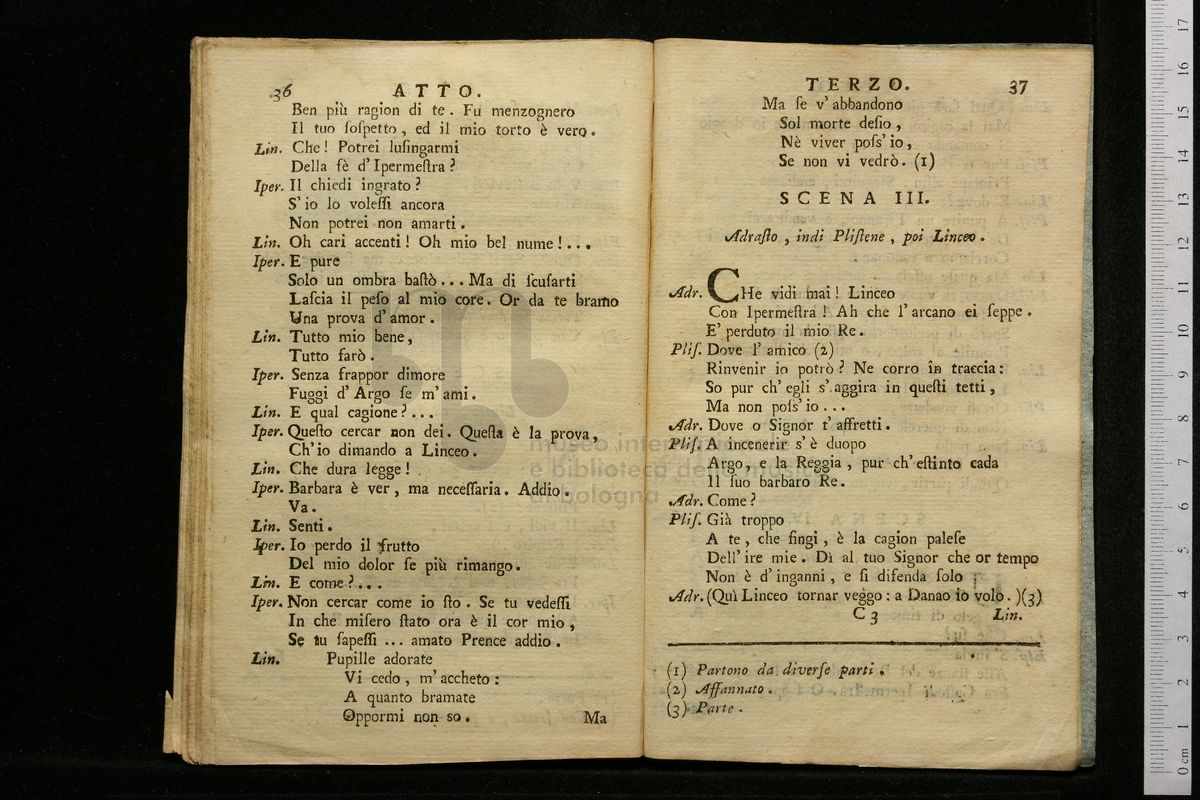 36 ATTO.
Ben più ragion di te. Fu menzognero
Il tuo ſoſpetto, ed il mio torto è vero.
Lin. Che! Potrei luſingarmi
Della fè d'Ipermeſtra?
Iper. Il chiedi ingrato?
S'io lo voleſſi ancora
Non potrei non amarti.
Lin. Oh cari accenti! Oh mio bel nume!...
Iper. E pure
Solo un ombra baſtò... Ma di ſcuſarti
Laſcia il peſo al mio core. Or da te bramo
Una prova d'amor.
Lin. Tutto mio bene,
Tutto farò.
Iper. Senza frappor dimore
Fuggi d'Argo ſe m'ami.
Lin. E qual cagione?...
Iper. Queſto cercar non dei. Queſta è la prova,
Ch'io dimando a Linceo.
Lin. Che dura legge!
Iper. Barbara è ver, ma neceſſaria. Addio.
Va.
Lin. Senti.
Iper. Io perdo il frutto
Del mio dolor ſe più rimango.
Lin. E come?...
Iper. Non cercar come io ſto. Se tu vedeſſi
In che miſero ſtato ora è il cor mio,
Se tu ſapeſſi ... amato Prence addio.
Lin. Pupille adorate
Vi cedo, m'accheto:
A quanto bramate
Oppormi non so.
Ma
TERZO. 37
Ma ſe v'abbandono
Sol morte deſio,
Nè viver poſs'io,
Se non vi vedrò. (1)
SCENA III.
Adraſto, indi Pliſtene, poi Linceo.
Adr. CHe vidi mai! Linceo
Con Ipermeſtra! Ah che l'arcano ei ſeppe.
E' perduto il mio Re.
Pliſ. Dove l'amico (2)
Rinvenir io potrò? Ne corro in traccia:
So pur ch'egli s'aggira in queſti tetti,
Ma non poſs'io...
Adr. Dove o Signor t'affretti.
Pliſ. A incenerir s'è duopo
Argo, e la Reggia, pur ch'eſtinto cada
Il ſuo barbaro Re.
Adr. Come?
Pliſ. Già troppo
A te, che fingi, è la cagion paleſe
Dell'ire mie. Dì al tuo Signor che or tempo
Non è d'inganni, e ſi difenda ſolo
Adr. (Quì Linceo tornar veggo: a Danao io volo.)(3)
C 3 Lin.
(1) Partono da diverſe parti.
(2) Affannato.
(3) Parte.
museo internazionale
e biblioteca della musica
di bologna
0 cm 1 2 3 4 5 6 7 8 9 10 11 12 13 14 15 16 17